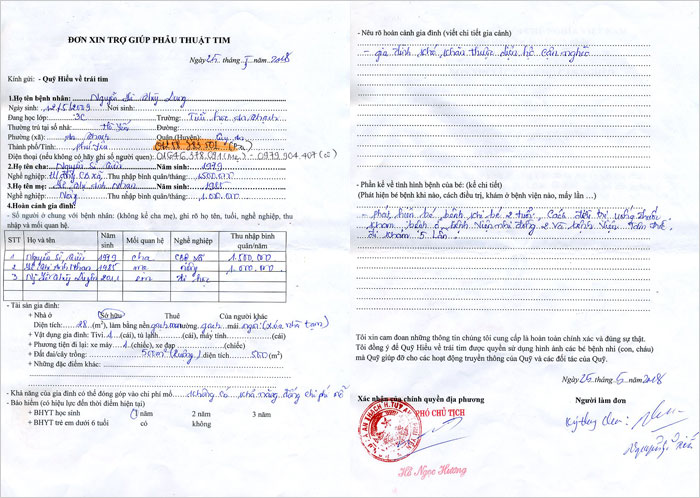 ĐƠN XIN TRỢ GIÚP PHẪU THUẬT TIM
Ngày 25 tháng 5 năm 2018
Kính gửi: - Quỹ Hiểu về trái tim
1.Họ tên bệnh nhân: Nguyễn
Ngày sinh: 12/5/2009 Nơi sinh:
Đang học lớp: 3C Trường: Tiểu học An Thạch
Thường trú tại số nhà: Đường:
Phường (xã): An Thạch Quận (Huyện): Tuy An
Thành phố/Tỉnh: Phú Yên
Điện thoại (nếu không có hãy ghi số người quen): - 0979.904.407
2.Họ tên cha: Nguyễn Sĩ Năm sinh: 1979
Nghề nghiệp: Thu nhập bình quân/tháng: 1.500.000
3.Họ tên mẹ: Năm sinh: 1985
Nghề nghiệp: Thu nhập bình quân/tháng: 1.000.000
4.Hoàn cảnh gia đình:
- Số người ở chung với bệnh nhân: (không kể cha mẹ), ghi rõ họ tên, tuổi, nghề nghiệp, thu nhập
và mối quan hệ.
STT Họ và tên Năm sinh Mối quan hệ Nghề nghiệp Thu nhập bình quân/năm
1 Nguyễn Sĩ 1979 cha 1.500.000
2 1985 mẹ 1.000.000
3 2011 em đi học
- Tài sản gia đình:
+ Nhà ở Sở hữu Thuê Của người khác
Diện tích: 48 (m²), làm bằng nền gạch men tường gạch mái ngói
+ Vật dụng gia đình: Tivi 1 (cái), tủ lạnh (cái), máy tính (cái)
+ Phương tiện đi lại: xe máy 1 (chiếc), xe đạp (chiếc)
+ Đất đai/cây trồng: 500m² (ruộng) diện tích 500 (m²)
+ Những đặc điểm khác:
- Khả năng của gia đình có thể đóng góp vào chi phí mổ: không có khả năng đóng chi phí mổ
- Bảo hiểm (có hiệu lực đến thời điểm hiện tại)
+ BHYT học sinh 1 năm 2 năm 3 năm
+ BHYT trẻ em dưới 6 tuổi có không
- Nêu rõ hoàn cảnh gia đình (viết chi tiết gia cảnh)
- gia đình khó khăn thuộc diện hộ cận nghèo
- Phần kể về tình hình bệnh của bé: (kể chi tiết)
(Phát hiện bệnh khi nào, cách điều trị, khám ở bệnh viện nào, mấy lần ...)
- phát hiện bé bệnh khi bé 2 tuổi. Cách điều trị uống thuốc
khám bệnh ở bệnh viện nhi đồng 2 và bệnh viện
đi khám 5 lần
Tôi xin cam đoan những thông tin chúng tôi cung cấp là hoàn toàn chính xác và đúng sự thật.
Tôi đồng ý để Quỹ Hiểu về trái tim được quyền sử dụng hình ảnh các bé bệnh nhi (con, cháu)
mà Quỹ giúp đỡ cho các hoạt động truyền thông của Quỹ và các đối tác của Quỹ.
Ngày 25 tháng 5 năm 2018
Xác nhận của chính quyền địa phương Người làm đơn
PHÓ CHỦ TỊCH
Hà Ngọc Hương